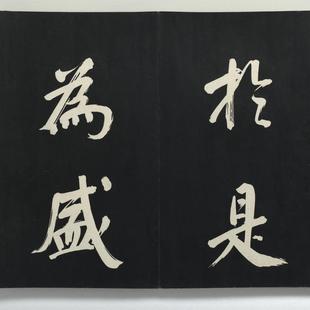 於是
為盛